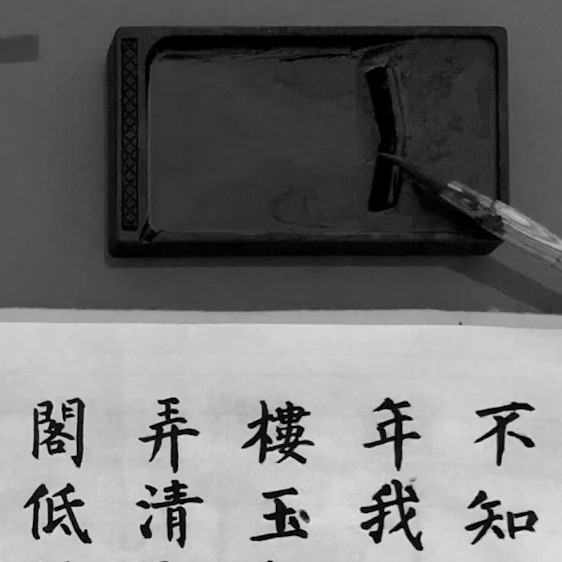 不知
年我
樓玉
弄清
閣低